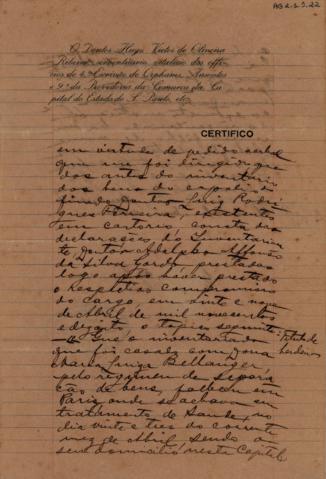 AG 2.2.5.22
O Doutor Hugo Victor de Oliveira
Ribeiro, serventuario vitalicio dos offi-
cios de 4º Escrivão de Orphams, Ausentes
e 9º da Provedoria da Comarca da Ca-
pital do Estado de S. Paulo, etc.
CERTIFICO
em virtude de pedido verbal
que me foi dirigido que
dos autos do inventario
dos bens do espolio do
finado Doutor Luiz Rodri-
gues Ferreira, existentes
em cartorio, consta das
declarações do Inventarian-
te Doutor Adolpho Affonso
da Silva Gordo prestadas
logo após haver prestado
o respectivo compromisso
do cargo, em vinte e nove
de Abril de mil novecentos
e dezoito o topico seguinte:
Titulo de
herdeiros
Que o inventariado
que foi casado com Dona
Maria Luiza Bellanger,
pelo regimen de separa-
ção de bens, falleceu em
Paris, onde se achava em
tratamento de saude, no
dia vinte e tres do corrente
mez de Abril, sendo o
seu domicilio nesta Capital